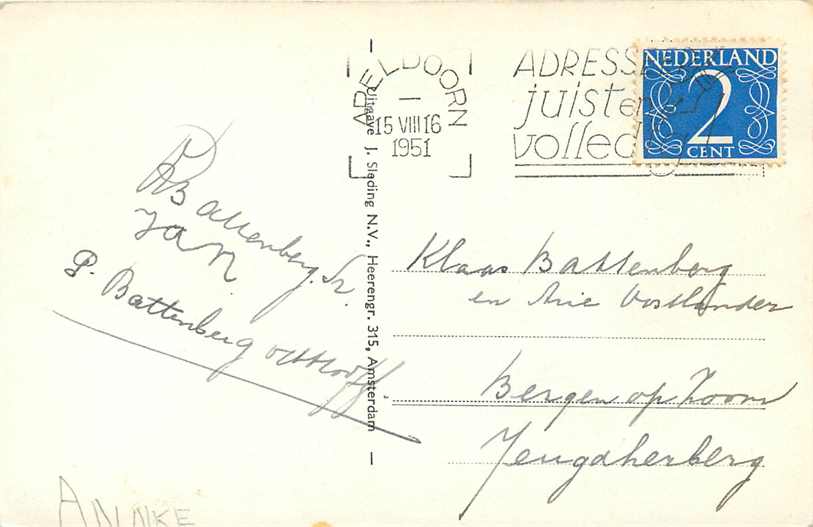 APELDOORN
15 VIII 16
1951
ADRESSE
juist en
volled
NEDERLAND
2
CENT
Uitgave J. Sleding N.V., Heerengr. 315, Amsterdam
Battenberg Sr.
Jan
P. Battenberg
Klaas Battenberg
en Arie Oostlander
Bergen op Zoom
Jeugdherberg
ANNKE